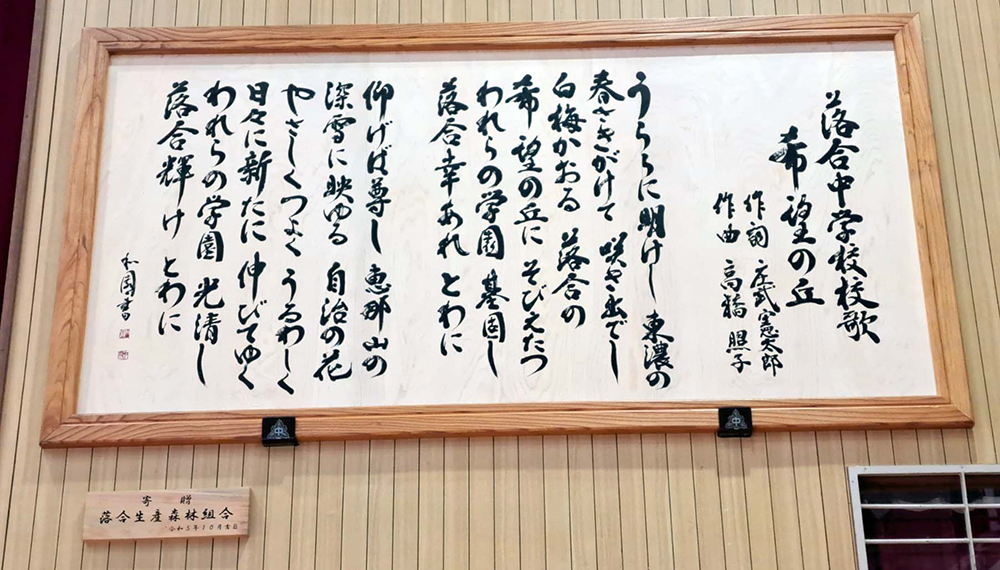 落合中学校校歌
希望の丘
作詞 庄武憲太郎
作曲 高橋照子
うららに明けし 東濃の
春さきがけて 咲き出でし
白梅かおる 落合の
希望の丘に そびえたつ
われらの学園 基固し
落合幸あれ とわに
仰げば尊し 恵那山の
深雪に映ゆる 自治の花
やさしくつよく うるわしく
日々に新たに 伸びてゆく
われらの学園 光清し
落合輝け とわに
書
中
中
寄贈
落合生産森林組合
令和5年10月吉日